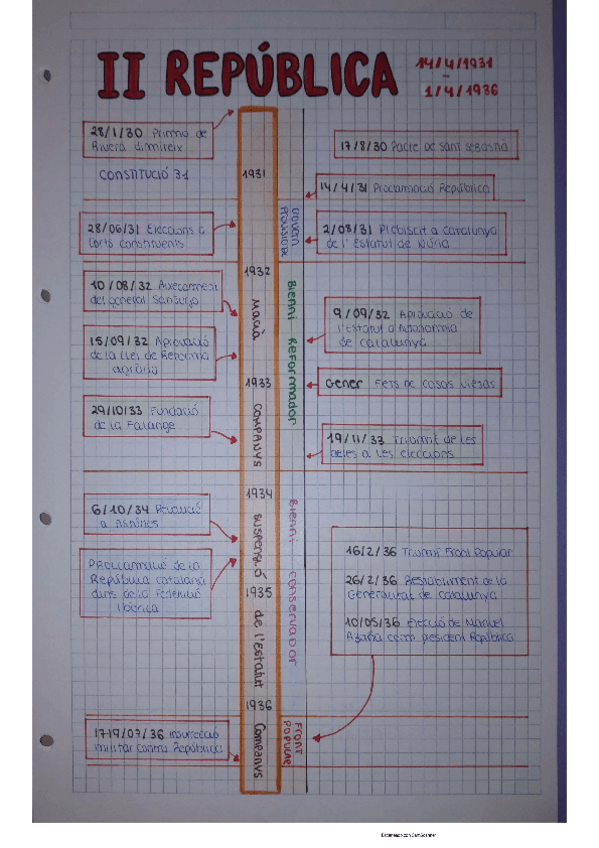 II REPÚBLICA
14/4/1931
-
1/4/1936
28/1/30 Primo de
Rivera dimiteix
CONSTITUCIÓ 31
28/06/31 Eleccions a
Corts Constituents
10/08/32 Aixecament
del general Sanjurjo
15/09/32 Aprovació
de la Llei de Reforma
agrària
29/10/33 Fundació
de la Falange
6/10/34 Revolució
a Astúries
Proclamació de la
República catalana
dins de la Federació
Ibèrica
17-19/07/36 Insurrecció
militar contra República
1931
1932
MACIÀ
1933
COMPANYS
1934
SUSPENSIÓ
1935
de l'estatut
1936
Companys
GOVERN
PROVISIONAL
Bienni Reformador
Bienni conservador
FRONT
POPULAR
17/8/30 Pacte de Sant Sebastià
14/4/31 Proclamació República
2/08/31 Plebiscit a Catalunya
de l'Estatut de Núria
9/09/32 Aprovació de
l'Estatut d'Autonomia
de Catalunya
Gener Fets de Casas Viejas
19/11/33 Triomf de les
dretes a les eleccions
16/2/36 Triomf Front Popular
26/2/36 Restabliment de la
Generalitat de Catalunya
10/05/36 Elecció de Manuel
Azaña com president República
Escaneado con CamScanner